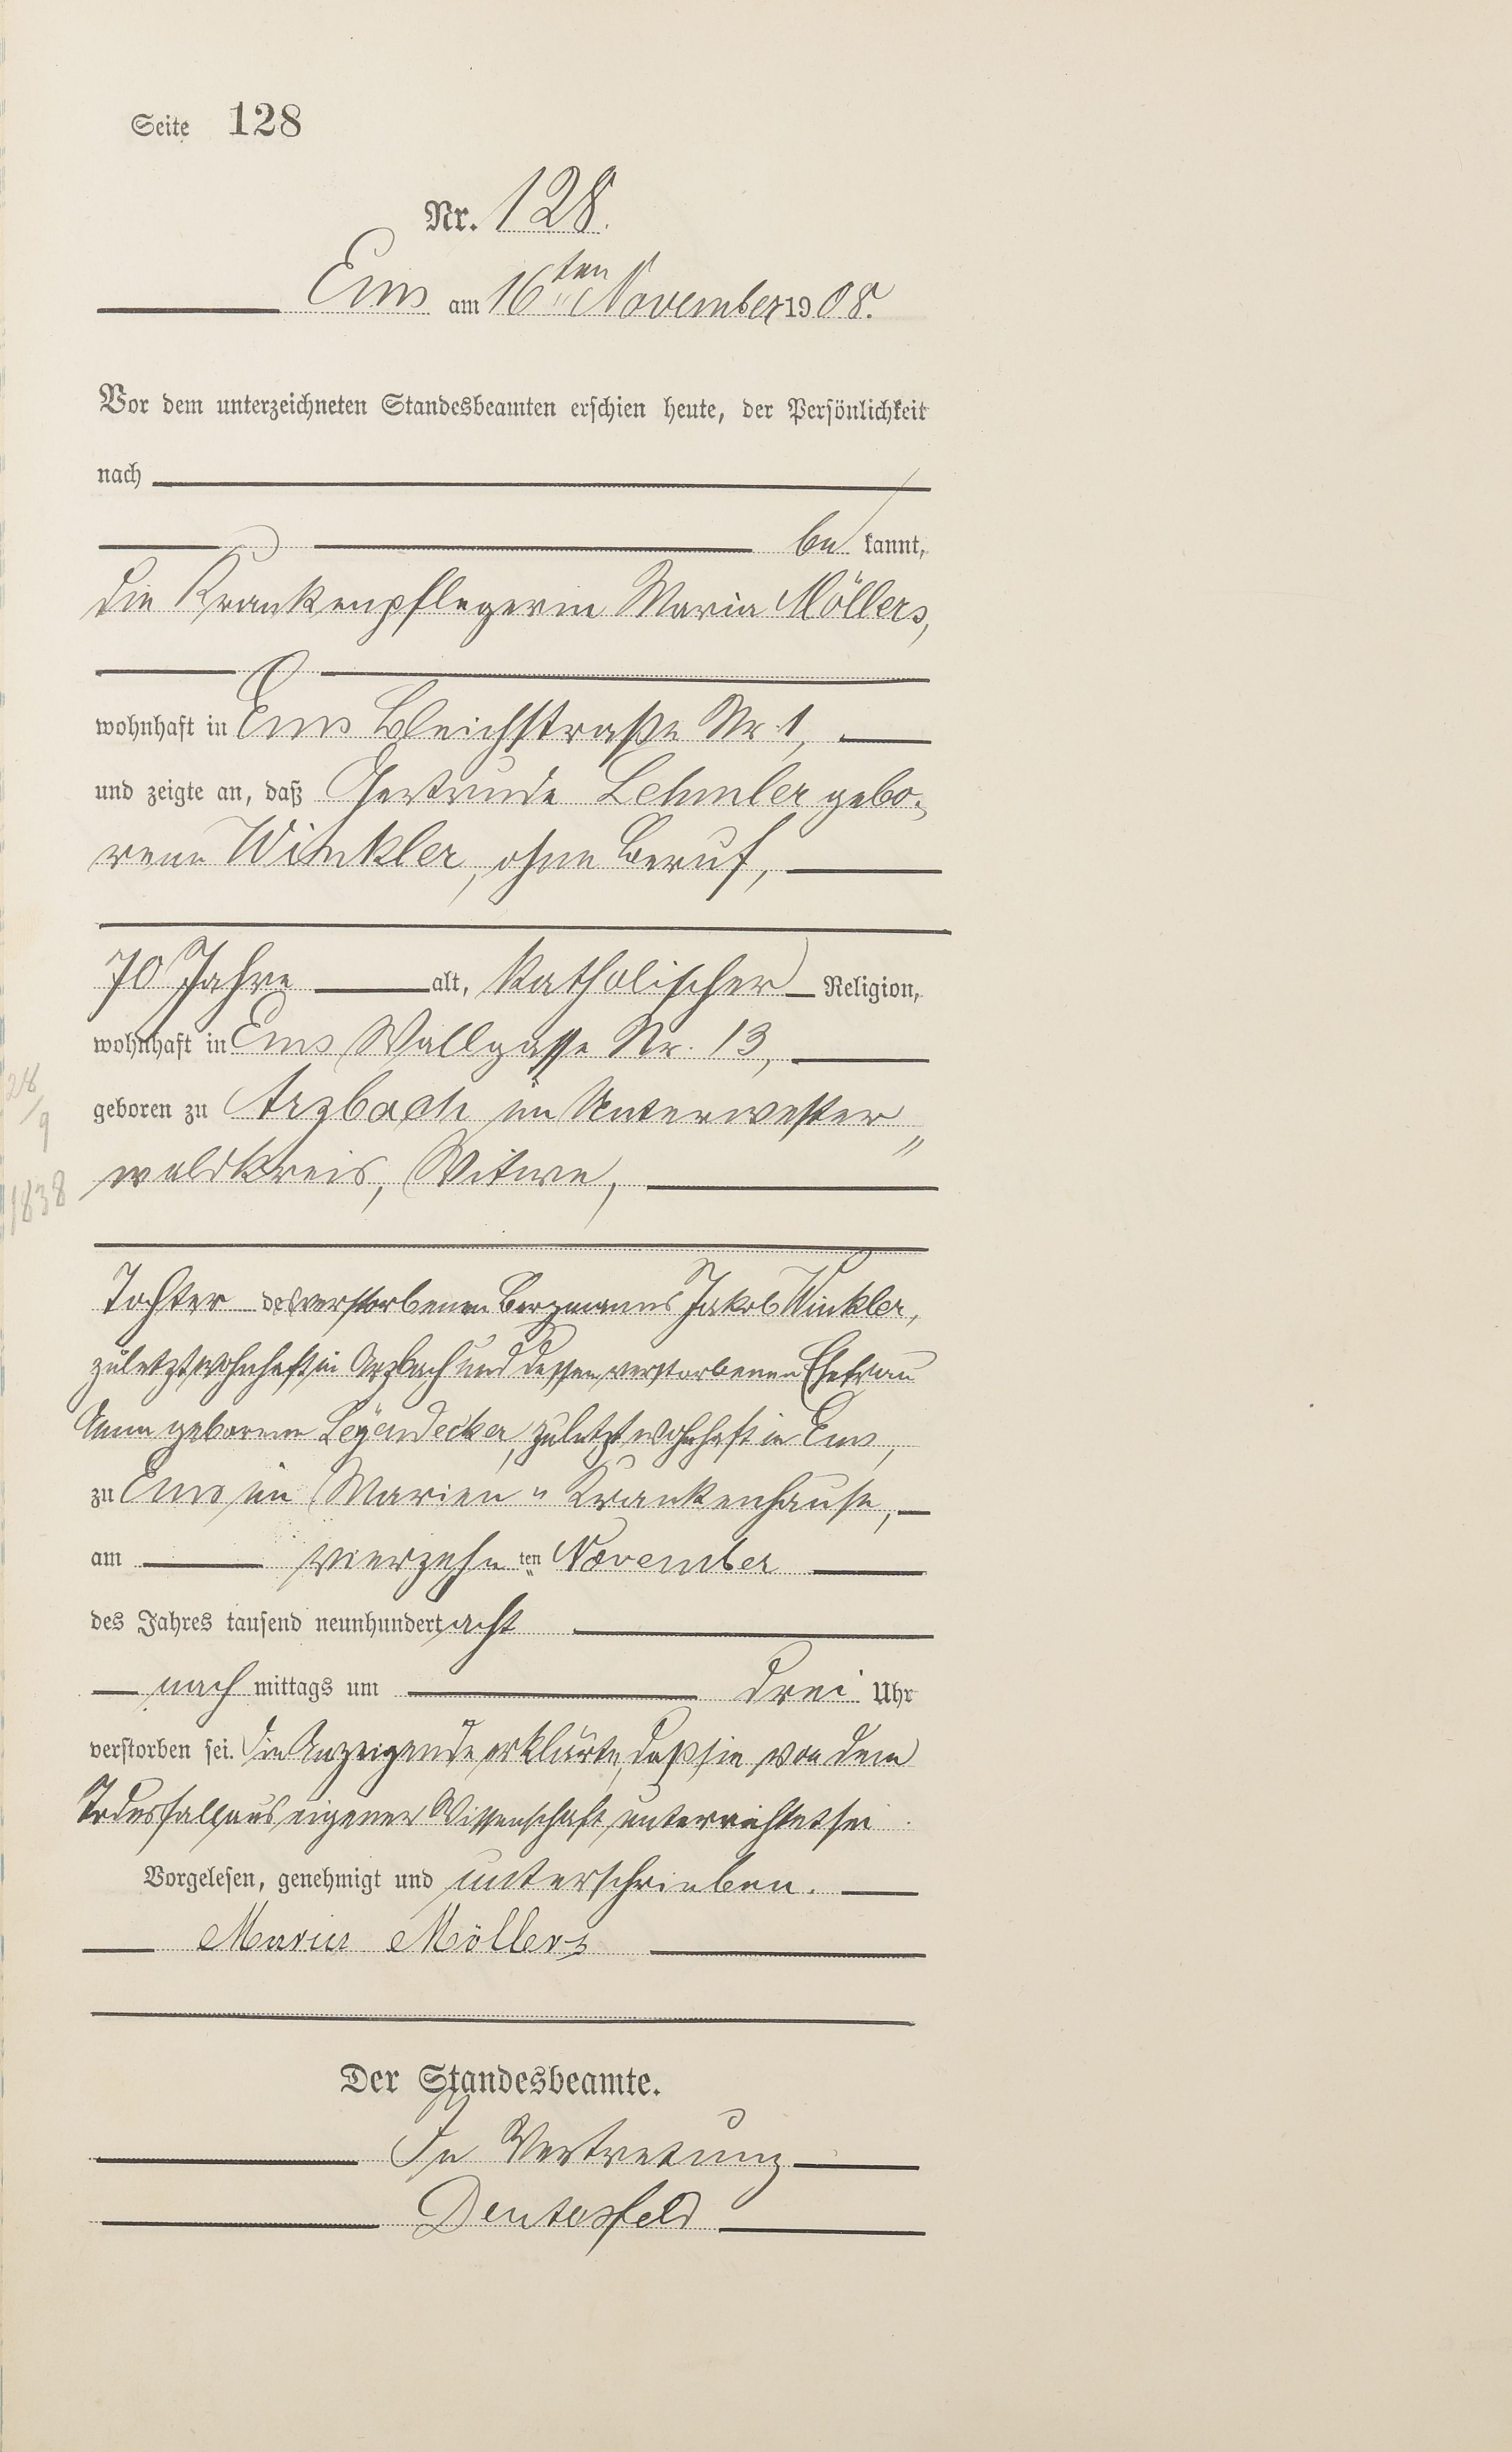 Seite 128
Nr. 128.
Ems am 16ten November 1908.
Vor dem unterzeichneten Standesbeamten erschien heute, der Persönlichkeit
nach
be kannt,
die Krankenpflegerin Maria Möllers,
wohnhaft in Ems Bleichstraße Nr. 1,
und zeigte an, daß Gertrude Lehmler gebo-
rene Winkler, ohne Beruf,
70 Jahre alt, katholischer Religion,
wohnhaft in Ems Wallgasse Nr. 13,
28/9
geboren zu Arzbach im Unterwester„
1838
waldkreis, Witwe,
Tochter des verstorbenen Bergmanns Jakob Winkler,
zuletzt wohnhaft in Arzbach und dessen verstorbenen Ehefrau
Anna geborenen Leyendecker, zuletzt wohnhaft in Ems,
zu Ems im Marien„Krankenhause,
am vierzehn ten November
des Jahres tausend neunhundert acht
nach mittags um drei Uhr
verstorben sei. Die Anzeigende erklärte, daß sie von dem
Todesfall aus eigener Wissenschaft unterrichtet sei.
Vorgelesen, genehmigt und unterschrieben.
Maria Möllers
Der Standesbeamte.
In Vertretung